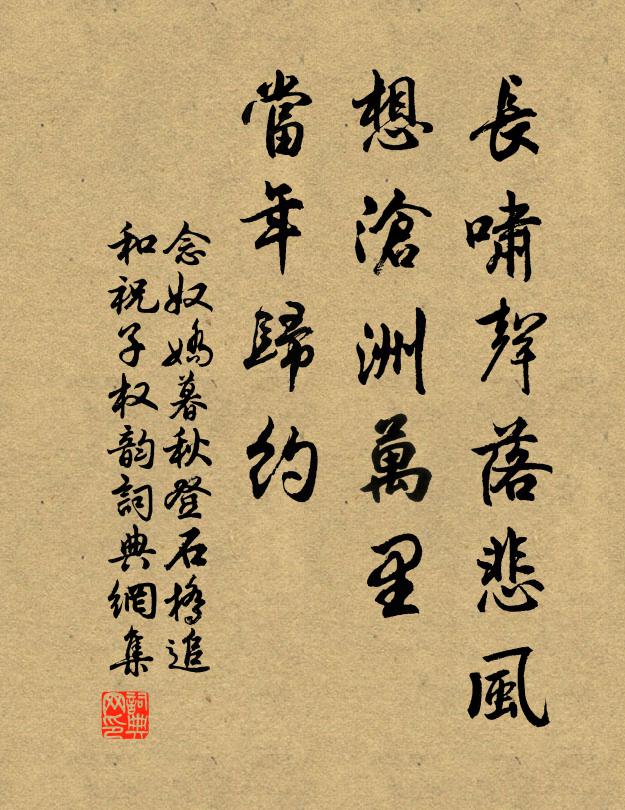 長嘯聲落悲風
想滄洲萬里
當年歸約
念奴嬌暮秋登石橋追
和祝子权韵詞典網集
詞典网印